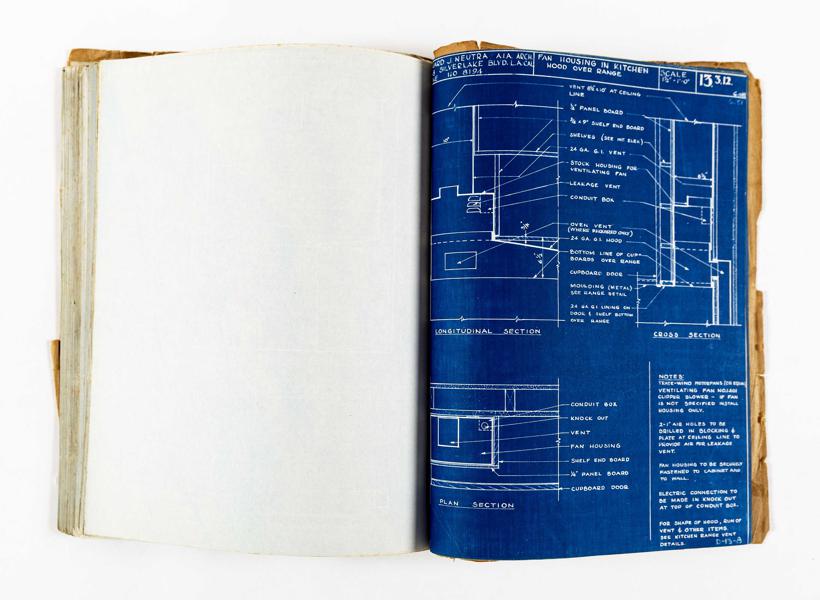 RD J. NEUTRA A.I.A. ARCH.
SILVERLAKE BLVD. L.A. CAL
NO 8194
FAN HOUSING IN KITCHEN
HOOD OVER RANGE
SCALE
13.3.12.
VENT 8½"x10" AT CEILING
LINE
¼" PANEL BOARD
¾ x 9" SHELF END BOARD
SHELVES (SEE INT ELEV.)
24 GA. G.I. VENT
STOCK HOUSING FOR
VENTILATING FAN
LEAKAGE VENT
CONDUIT BOX
OVEN VENT
(WHERE REQUIRED ONLY)
24 GA. G.I. HOOD
BOTTOM LINE OF CUP-
BOARDS OVER RANGE
CUPBOARD DOOR
MOULDING (METAL)
SEE RANGE DETAIL
24 GA. G.I. LINING ON
DOOR & SHELF BOTTOM
OVER RANGE
LONGITUDINAL SECTION
CROSS SECTION
CONDUIT BOX
KNOCK OUT
VENT
FAN HOUSING
SHELF END BOARD
¼" PANEL BOARD
CUPBOARD DOOR
PLAN SECTION
NOTES:
TRADE-WIND MOTORFANS (OR EQUAL
VENTILATING FAN
CLIPPER BLOWER - IF FAN
IS NOT SPECIFIED INSTALL
HOUSING ONLY.
2-1" AIR HOLES TO BE
DRILLED IN BLOCKING &
PLATE AT CEILING LINE TO
PROVIDE AIR FOR LEAKAGE
VENT.
FAN HOUSING TO BE SECURELY
FASTENED TO CABINET AND
TO WALL.
ELECTRIC CONNECTION TO
BE MADE IN KNOCK OUT
AT TOP OF CONDUIT BOX.
FOR SHAPE OF HOOD, RUN OF
VENT & OTHER ITEMS
SEE KITCHEN RANGE VENT
DETAILS.
D-13-B